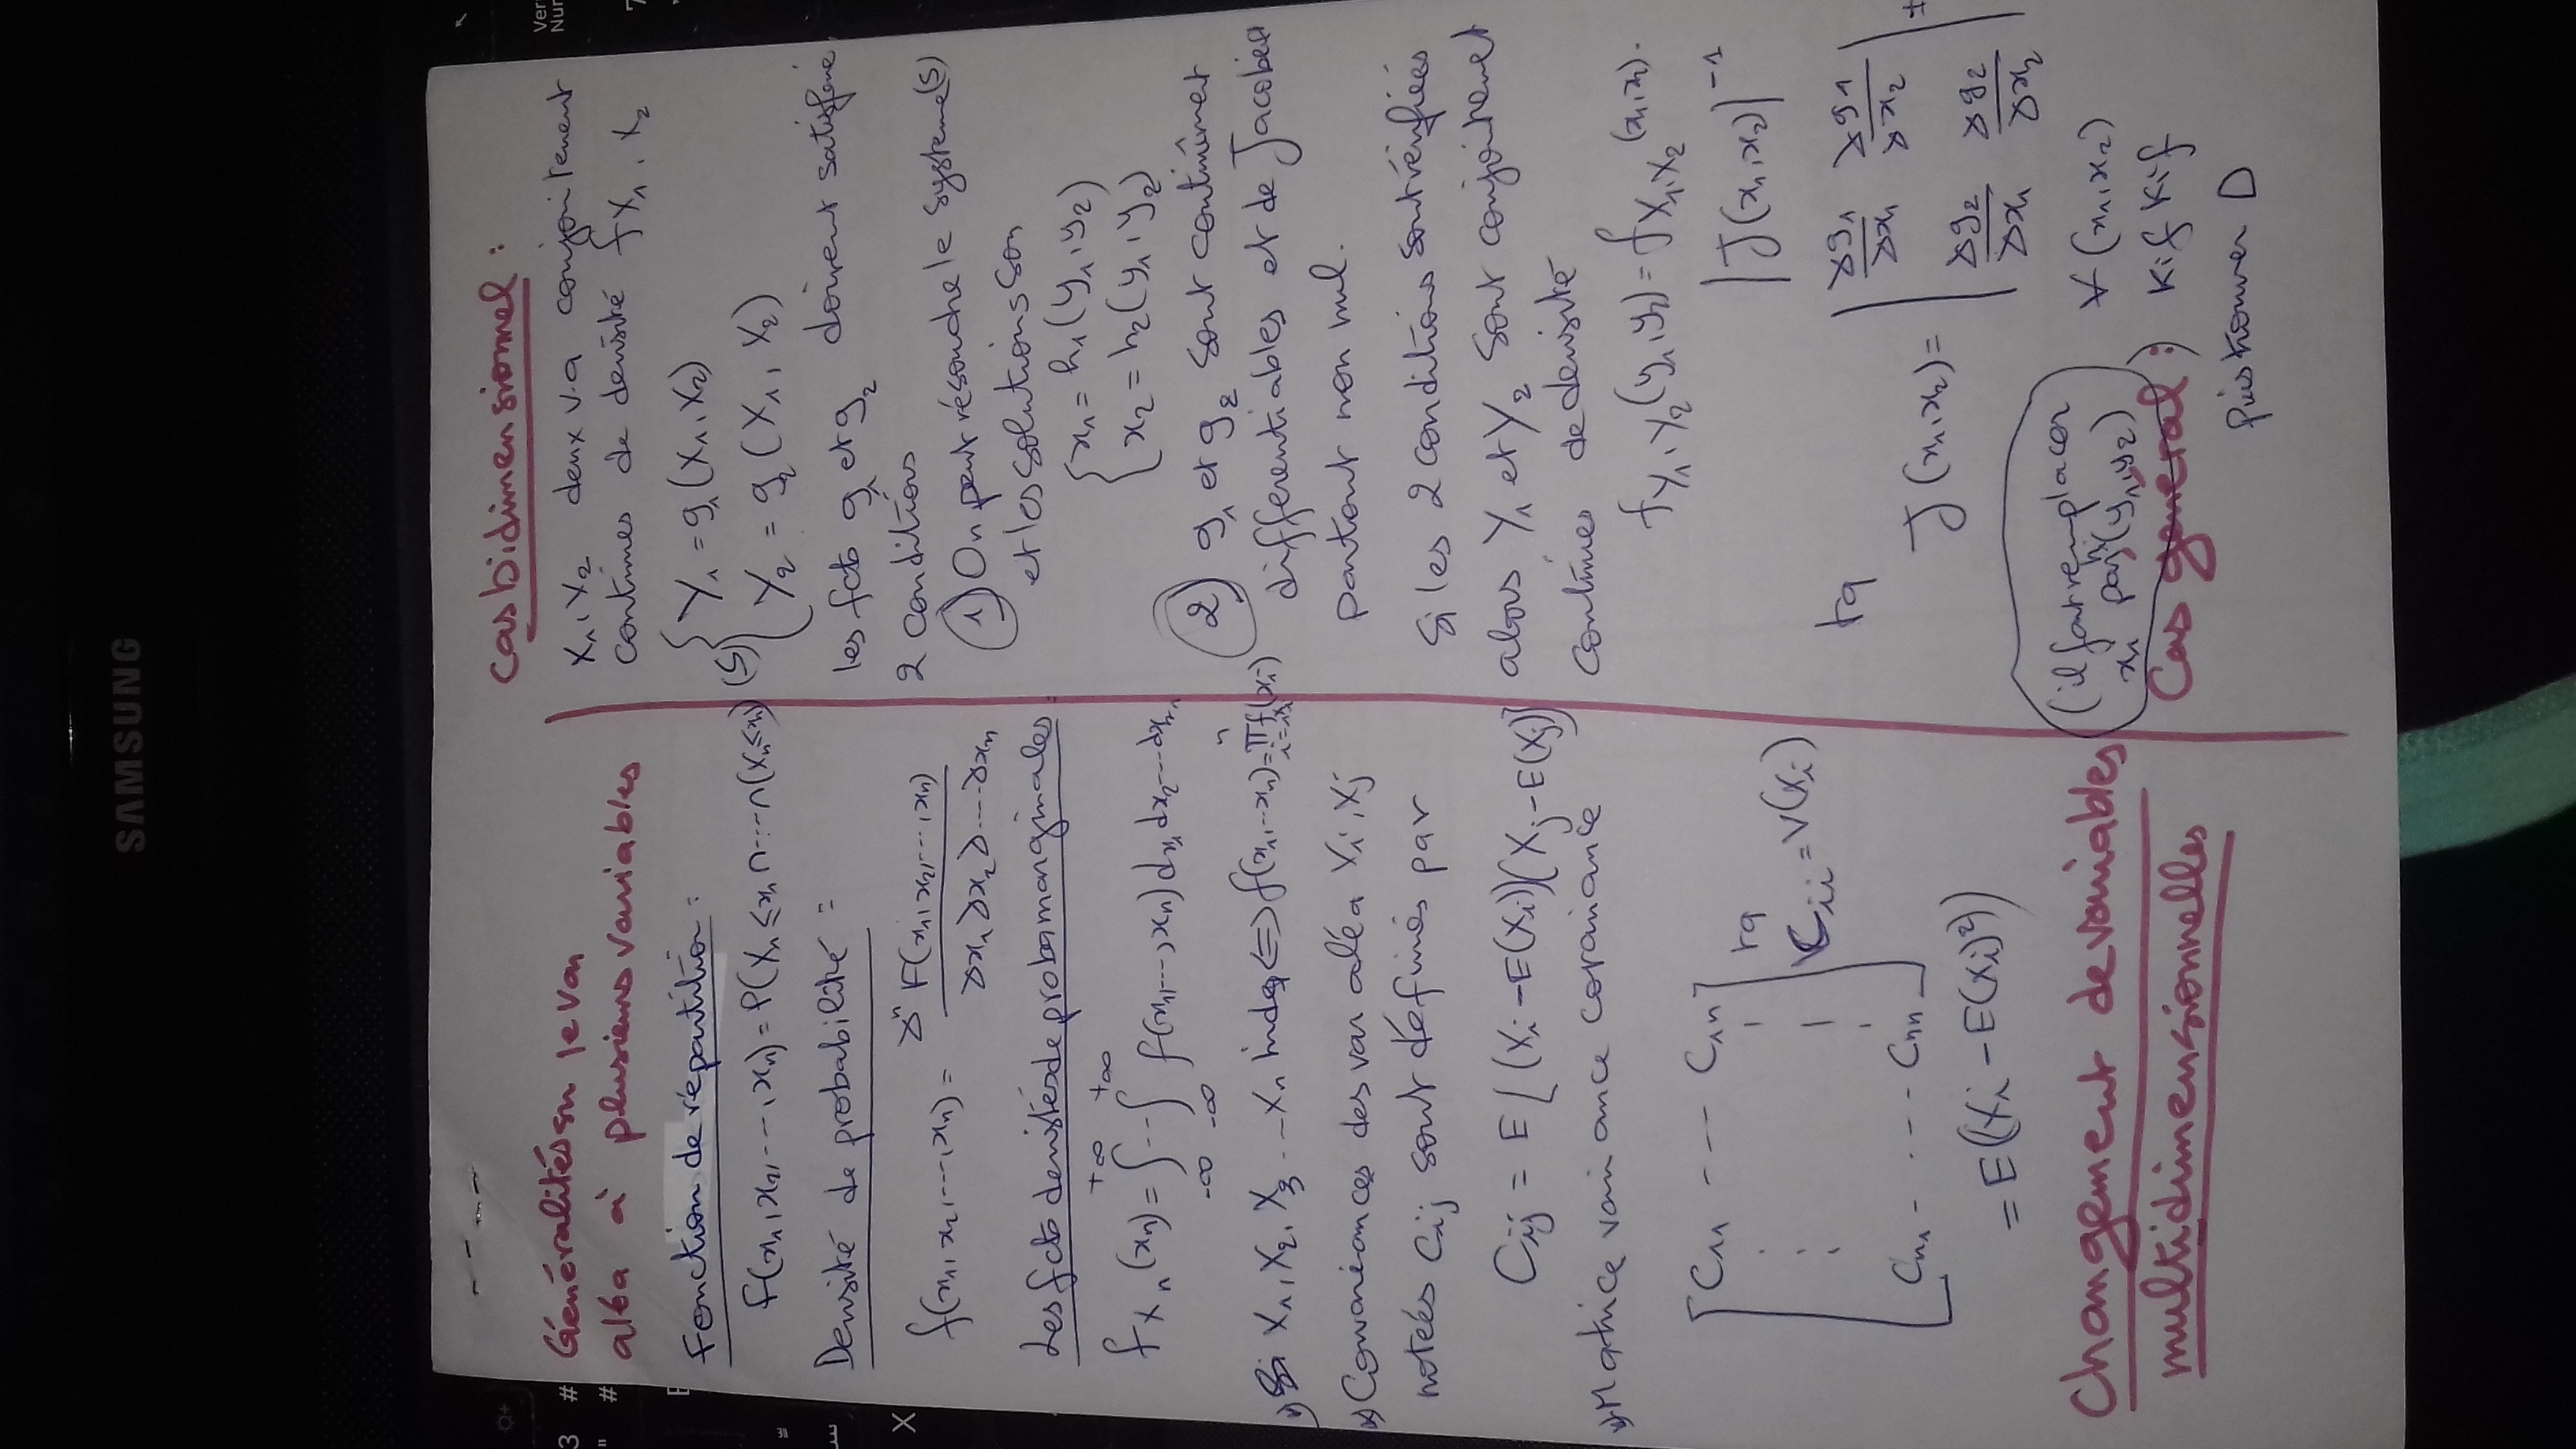 SAMSUNG
Généralités su le var
aléa à plusieurs variables
Fonction de répartition :
F(x₁,x₂,---,xₙ)=P(Xₙ≤xₙ∩---∩(Xₙ≤xₙ)
Densité de probabilité :
f(x₁,x₂,---,xₙ) = ∂ⁿ F(x₁,x₂,---,xₙ) / ∂x₁∂x₂∂----∂xₙ
Les fcts densités de proba marginales
f Xₙ(xₙ) = ∫₋∞⁺∞ -- ∫₋∞⁺∞ f(x₁,---,xₙ)dx₁dx₂---dxₙ
Si X₁,X₂,X₃ ..-Xₙ indep <=> f(x₁,--xₙ)= ∏ⁿᵢ₌₁ fxᵢ(xᵢ)
Covariances des var aléa Xi,Xj
notées Cij sont définies par
Cij = E[(Xi-E(Xi))(Xj-E(Xj)]
Matrice variance covariance
C₁₁ --- C₁ₙ
tq
Cii = V(Xi)
Cₙ₁- . --- Cₙₙ
= E((Xi-E(Xi)²))
Changement de variables
multidimensionnelles
Cas bidimensionnel :
X₁,X₂ deux v.a conjointement
continues de densité f X₁,X₂
(S) { Y₁ = g₁(X₁,X₂)
Y₂ = g₂(X₁,X₂)
les fcts g₁ et g₂ doivent satisfaire
2 conditions
1) On peut résoudre le système(S)
et les solutions son
{ x₁ = h₁(y₁,y₂)
x₂ = h₂(y₁,y₂)
2) g₁ et g₂ sont continûmet
differentiables et de Jacobien
partout non nul.
Si les 2 conditions sont vérifiées
alors Y₁ et Y₂ sont conjointemet
continues de densité
f Y₁,Y₂(y₁,y₂) = f X₁,X₂ (x₁,x₂).
|J(x₁,x₂)|⁻¹
tq
J(x₁,x₂) = | ∂g₁/∂x₁ ∂g₁/∂x₂ | ≠
| ∂g₂/∂x₁ ∂g₂/∂x₂ |
(il faut remplacer
xi par h(y₁,y₂)
∀ (x₁,x₂)
Cas général:) Kif Kif
puis trouver D